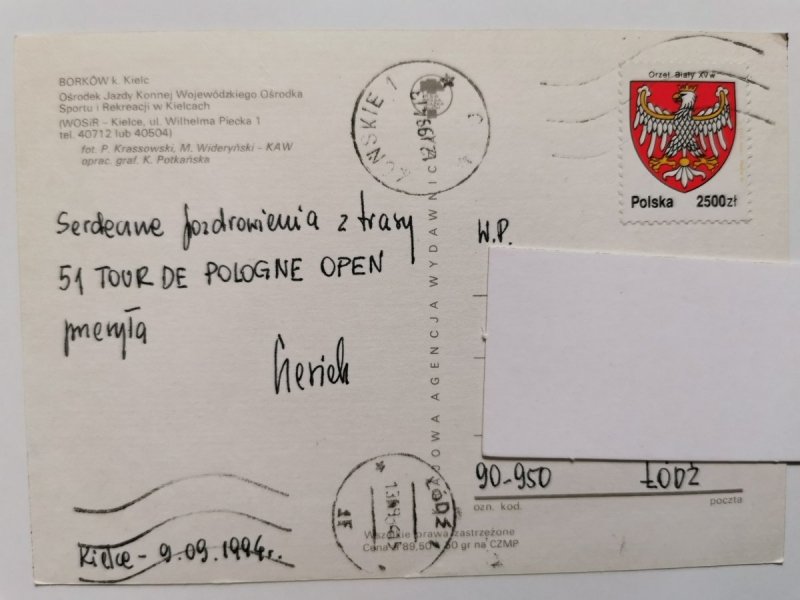 BORKÓW k. Kielc
Ośrodek Jazdy Konnej Wojewódzkiego Ośrodka
Sportu i Rekreacji w Kielcach
(WOSiR – Kielce, ul. Wilhelma Piecka 1
tel. 40712 lub 40504)
fot. P. Krassowski, M. Wideryński – KAW
oprac. graf. K. Potkańska
Serdeczne pozdrowienia z trasy
51 TOUR DE POLOGNE OPEN
przesyła
Czesiek
Kielce - 9.09.1994r.
KRAJOWA AGENCJA WYDAWNICZA
KOŃSKIE 1
Orzeł Biały XVw
Polska 2500zł
W.P.
90-950 ŁÓDŹ
ozn. kod. poczta
ŁÓDŹ
Wszelkie prawa zastrzeżone
gr na CZMP